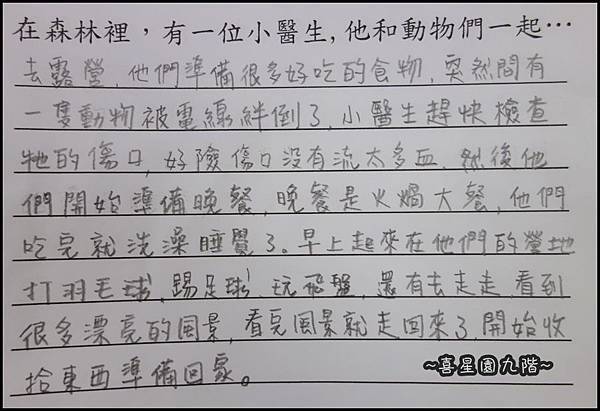 在森林裡，有一位小醫生，他和動物們一起…
去露營，他們準備很多好吃的食物，突然間有
一隻動物被電線絆倒了，小醫生趕快檢查
牠的傷口，好險傷口沒有流太多血，然後他
們開始準備晚餐，晚餐是火焗大餐，他們
吃完就洗澡睡覺了。早上起來在他們的營地
打羽毛球，踢足球，玩飛盤，還有去走走，看到
很多漂亮的風景，看完風景就走回來了，開始收
拾東西準備回家。
~喜星園九階~